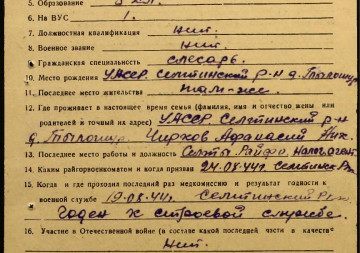 5. Образование 3 кл.
6. На ВУС 1.
7. Должностная квалификация нит.
8. Военное звание нит.
9. Гражданская специальность слесарь.
10. Место рождения УАССР. Селтинский р-н д.
11. Последнее место жительства
12. Где проживает в настоящее время семья (фамилия, имя и отчество жены или
родителей и точный их адрес) УАССР, Селтинский р-н
д. Чирков Афанасий Ник.
13. Последнее место работы и должность Селты Райфо, Налогагент.
14. Каким райгорвоенкоматом и когда призван 24.08.44г. Селтинск
15. Когда и где проходил последний раз медкомиссию и результат годности к
военной службе 19.08.44г. Селтинский
Годен к строевой службе.
16. Участие в Отечественной войне (в составе какой последней части в качестве
Нит.